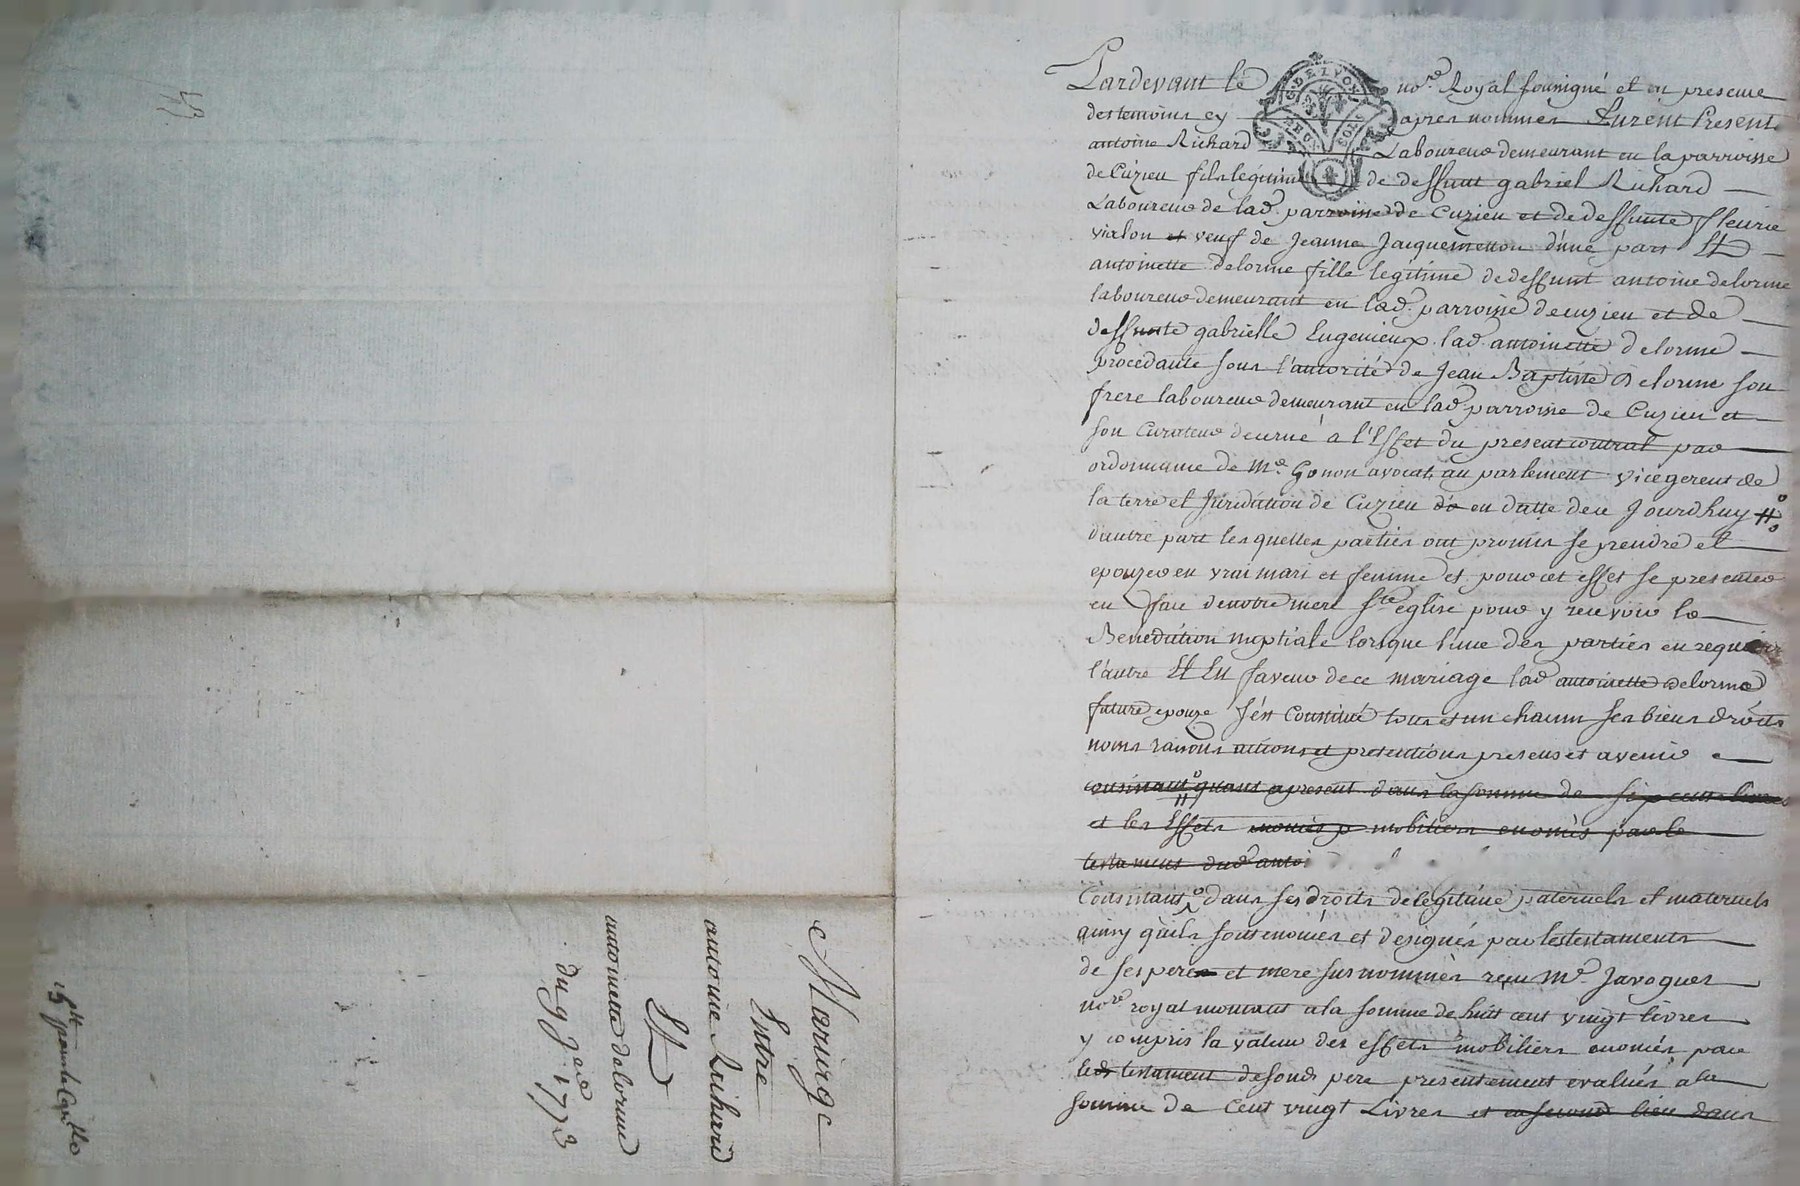 Pardevant le no.re Royal sousigné et en presence
des temoins cy apres nommes furent Presents
antoine Richard Laboureur demeurant en la parroisse
de Cuzieu fils légitime de deffunt gabriel Richard
Laboureur de lad. parroisse de Cuzieu et de deffunte fleurie
vialon et veuf de Jeanne Jacquemetton d'une part Et
antoinette delorme fille legitime de deffunt antoine delorme
laboureur demeurant en lad. parroisse de cuzieu et de
deffunte gabrielle Eugenieux lad. antoinette delorme
procedante sous l'autorité de Jean Baptiste Delorme son
frere laboureur demeurant en lad. parroisse de Cuzieu et
son Curateur decerné a l'Effet du present contrat par
ordonnance de Me. Gonon avocat au parlement vicegerent de
la terre et Juridiction de Cuzieu en datte de ce Jourdhuy #
d'autre part lesquelles parties ont promis se prendre et
epouzer en vrai mari et femme et pour cet effet se presenter
en face de notre mere Ste eglise pour y recevoir la
Benediction nuptiale lorsque l'une des parties en requerra
l'autre Et En faveur de ce mariage lad. antoinette delorme
future epouze s'est Constitué tous et un chacun ses biens droits
noms raisons actions et pretentions presens et avenir
consistant quant apresent dans la somme de six cent livres
et les Effets mobiliers enoncés par le
testament dud. antoi
Consistant dans ses droits de légitime paternels et maternels
ainsy qu'ils sont enoncés et designés par les testaments
de ses pere et mere susnommés reçu Me. Javogues
no.re royal montant a la somme de huit cent vingt livres
y compris la valeur des effets mobiliers enoncés par
led. testament de sond. pere presentement evalués a la
somme de Cent vingt Livres et en second lieu dans
Mariage
Entre
antoine Richard
Et
antoinette delorme
du 9 1773